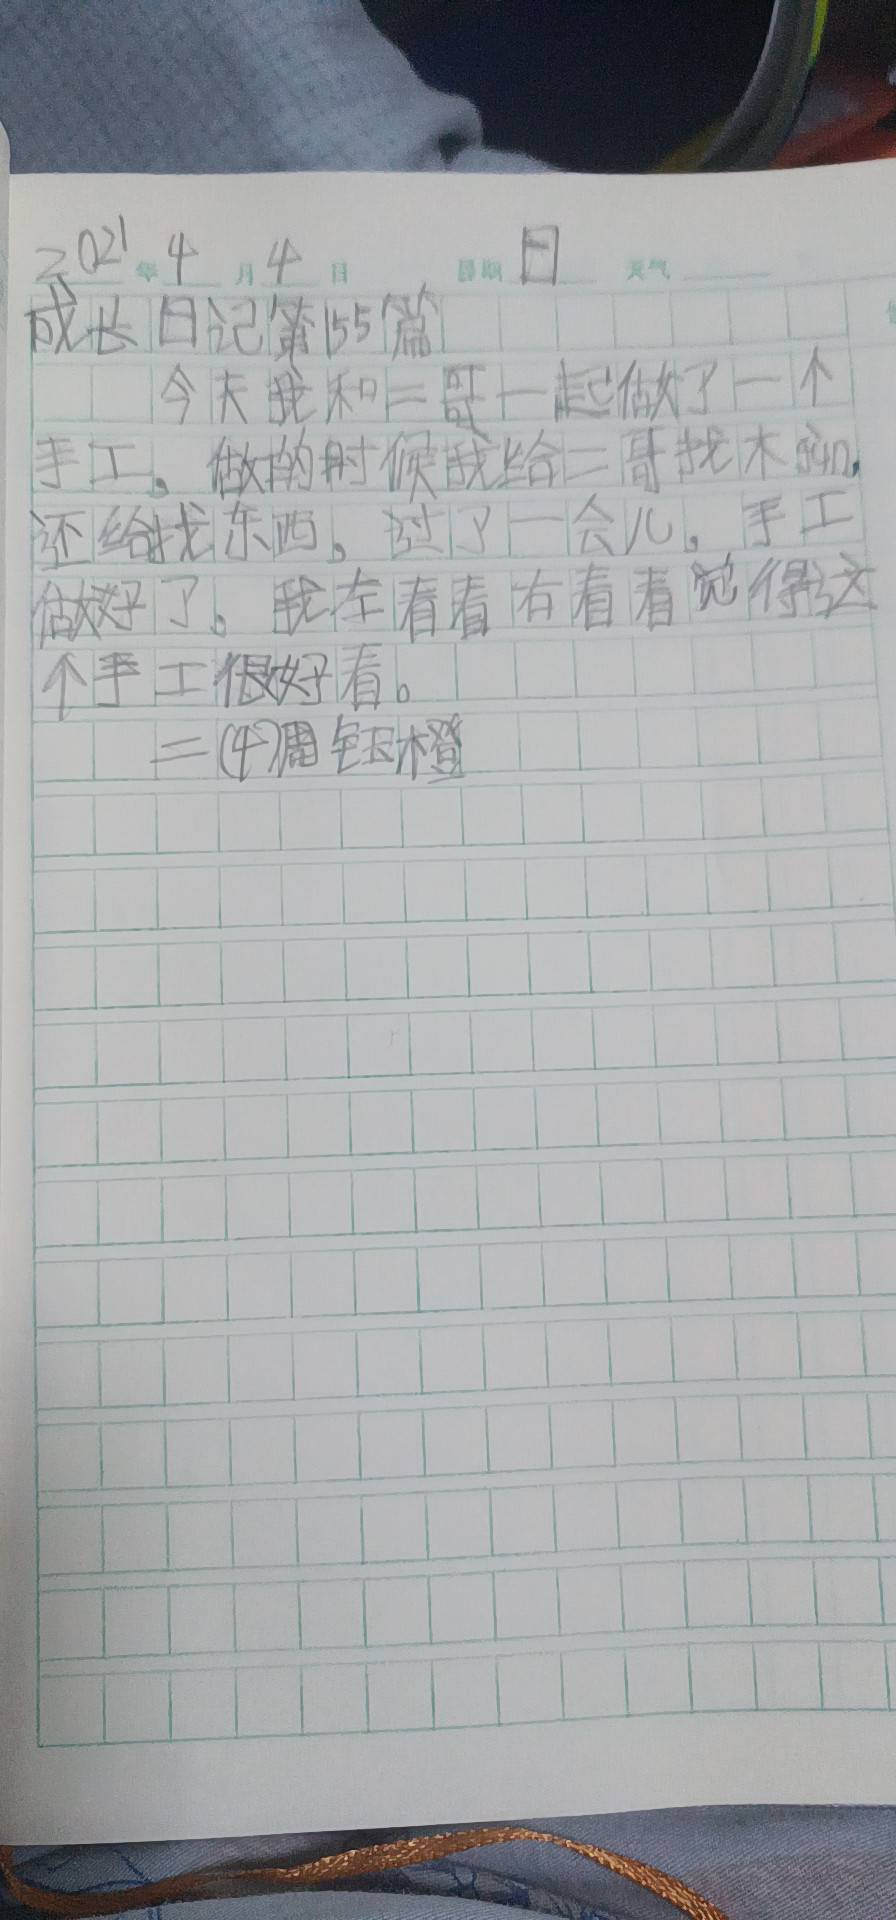 2021年4月4日 星期日 天气
成长日记第155篇
今天我和二哥一起做了一个
手工。做的时候我给二哥找木
还给找东西。过了一会儿。手工
做好了。我左看看右看看觉得这
个手工很好看。
二(4)周钰橙